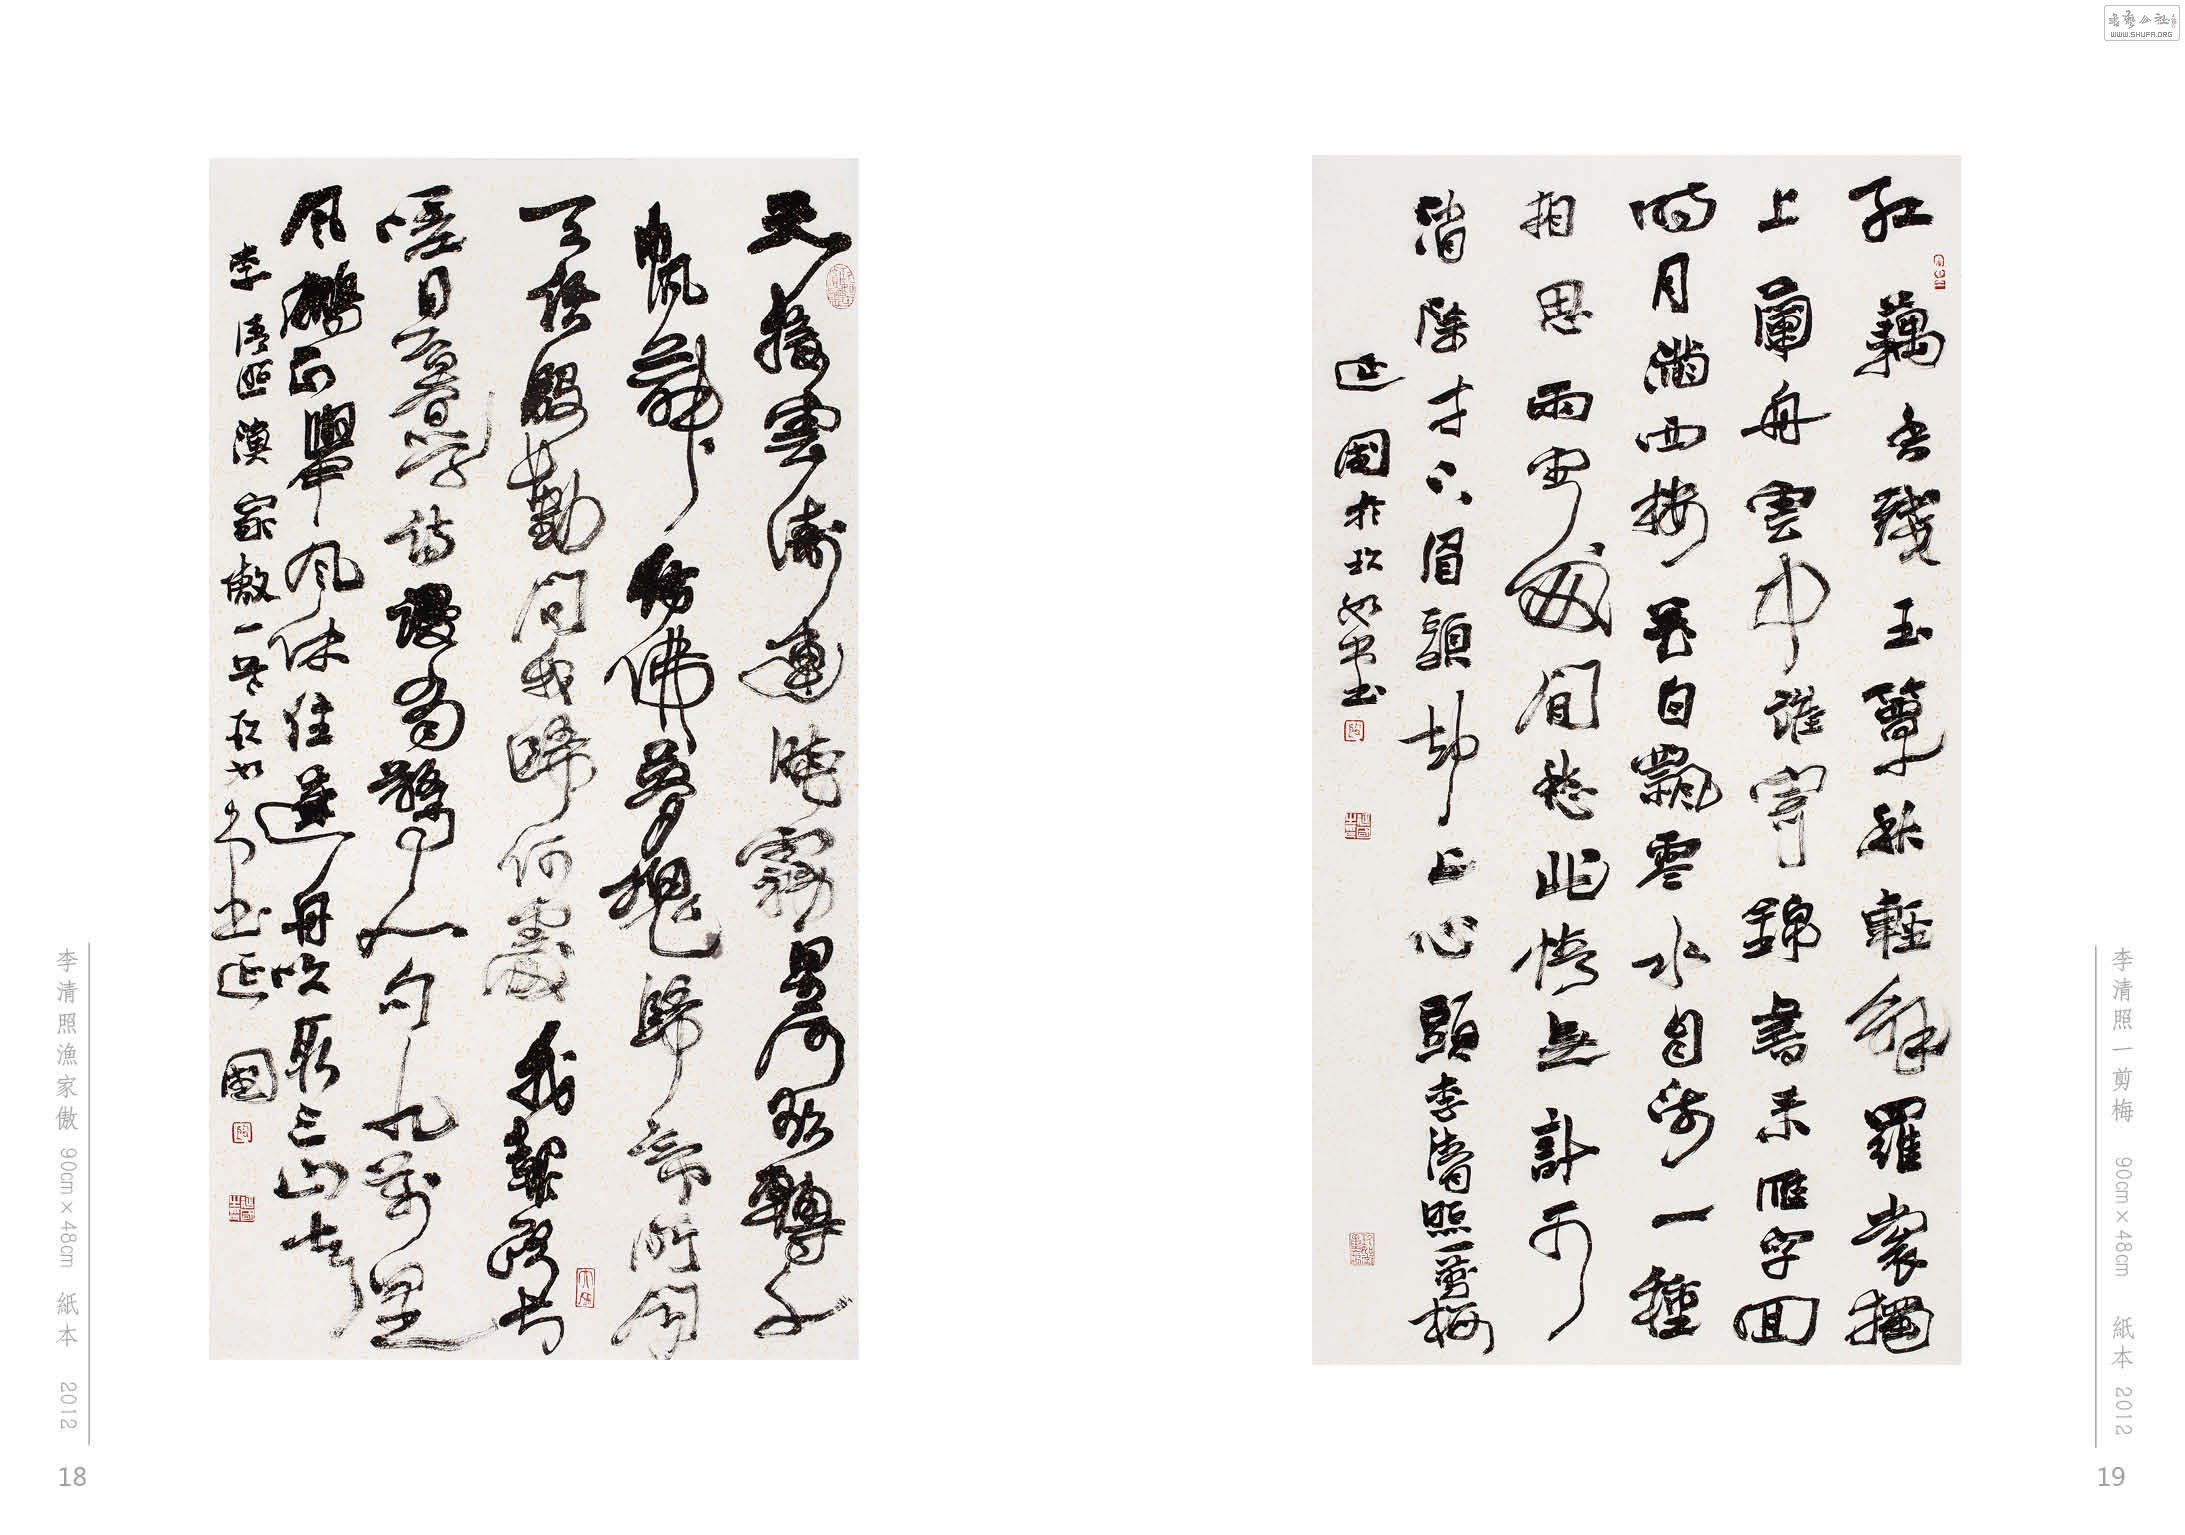 天接雲濤連曉霧星河欲轉千
帆舞仿佛夢魂歸帝所聞
天語殷勤問我歸何處我報路長
嗟日暮學詩謾有驚人句九萬里
風鵬正舉風休住蓬舟吹取三山去
李清照漁家傲一首書延國
李清照漁家傲 90cm×48cm 紙本 2012
18
紅藕香殘玉簟秋輕解羅裳獨
上蘭舟雲中誰寄錦書來雁字回
時月滿西樓花自飄零水自流一種
相思兩處閒愁此情無計可
消除才下眉頭却上心頭李清照一剪梅
延國於書
李清照一剪梅 90cm×48cm 紙本 2012
19
書藝公社
WWW.SHUFA.ORG